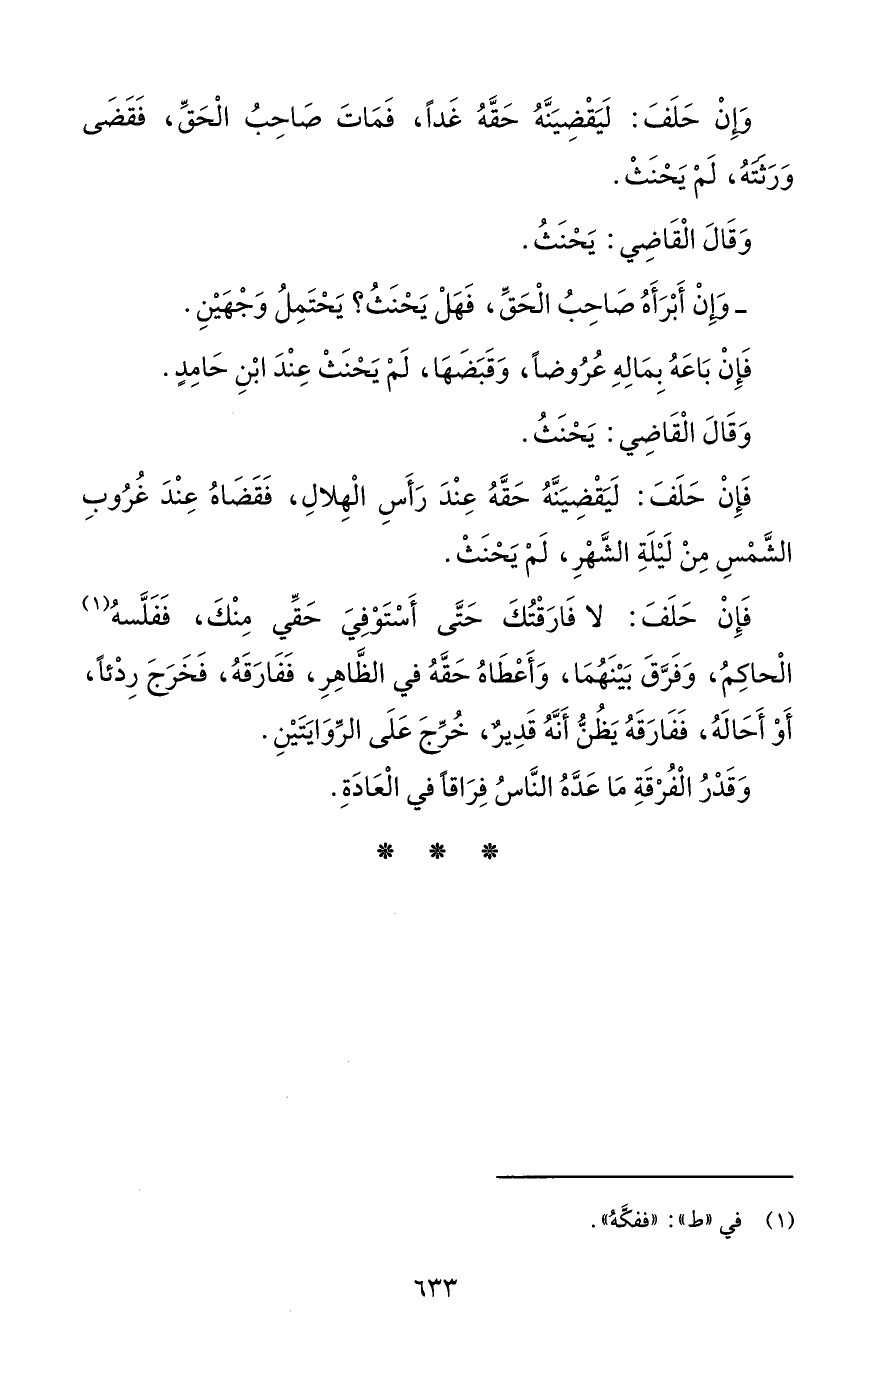 وَإِنْ حَلَفَ: لَيَقْضِيَنَّهُ حَقَّهُ غَداً، فَمَاتَ صَاحِبُ الْحَقِّ، فَقَضَى
وَرَثَتَهُ، لَمْ يَحْنَثْ.
وَقَالَ الْقَاضِي: يَحْنَثُ.
- وَإِنْ أَبْرَأَهُ صَاحِبُ الْحَقِّ، فَهَلْ يَحْنَثُ؟ يَحْتَمِلُ وَجْهَيْنِ.
فَإِنْ بَاعَهُ بِمَالِهِ عُرُوضاً، وَقَبَضَهَا، لَمْ يَحْنَثْ عِنْدَ ابْنِ حَامِدٍ.
وَقَالَ الْقَاضِي: يَحْنَثُ.
فَإِنْ حَلَفَ: لَيَقْضِيَنَّهُ حَقَّهُ عِنْدَ رَأَسِ الْهِلالِ، فَقَضَاهُ عِنْدَ غُرُوبِ
الشَّمْسِ مِنْ لَيْلَةِ الشَّهْرِ، لَمْ يَحْنَثْ.
فَإِنْ حَلَفَ: لا فَارَقْتُكَ حَتَّى أَسْتَوْفِيَ حَقِّي مِنْكَ، فَفَلَّسهُ(١)
الْحاكِمُ، وَفَرَّقَ بَيْنَهُمَا، وَأَعْطَاهُ حَقَّهُ في الظَّاهِرِ، فَفَارَقَهُ، فَخَرَجَ رِدْئاً،
أَوْ أَحَالَهُ، فَفَارَقَهُ يَظُنُّ أَنَّهُ قَدِيرٌ، خُرِّجَ عَلَى الرِّوَايَتَيْنِ.
وَقَدْرُ الْفُرْقَةِ مَا عَدَّهُ النَّاسُ فِرَاقاً في الْعَادَةِ.
* * *
(١) في «ط»: «ففكَّهُ».
٦٣٣